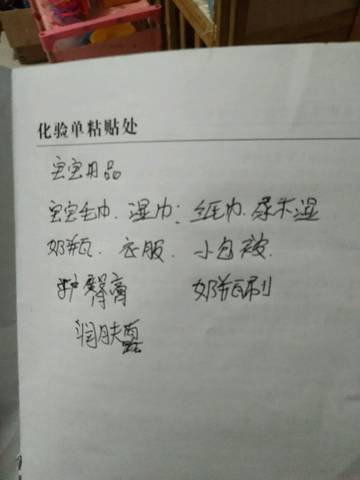 化验单粘贴处
宝宝用品
宝宝毛巾.湿巾:纸巾.尿不湿
奶瓶.衣服.小包被.
护臀膏 奶瓶刷
润肤露